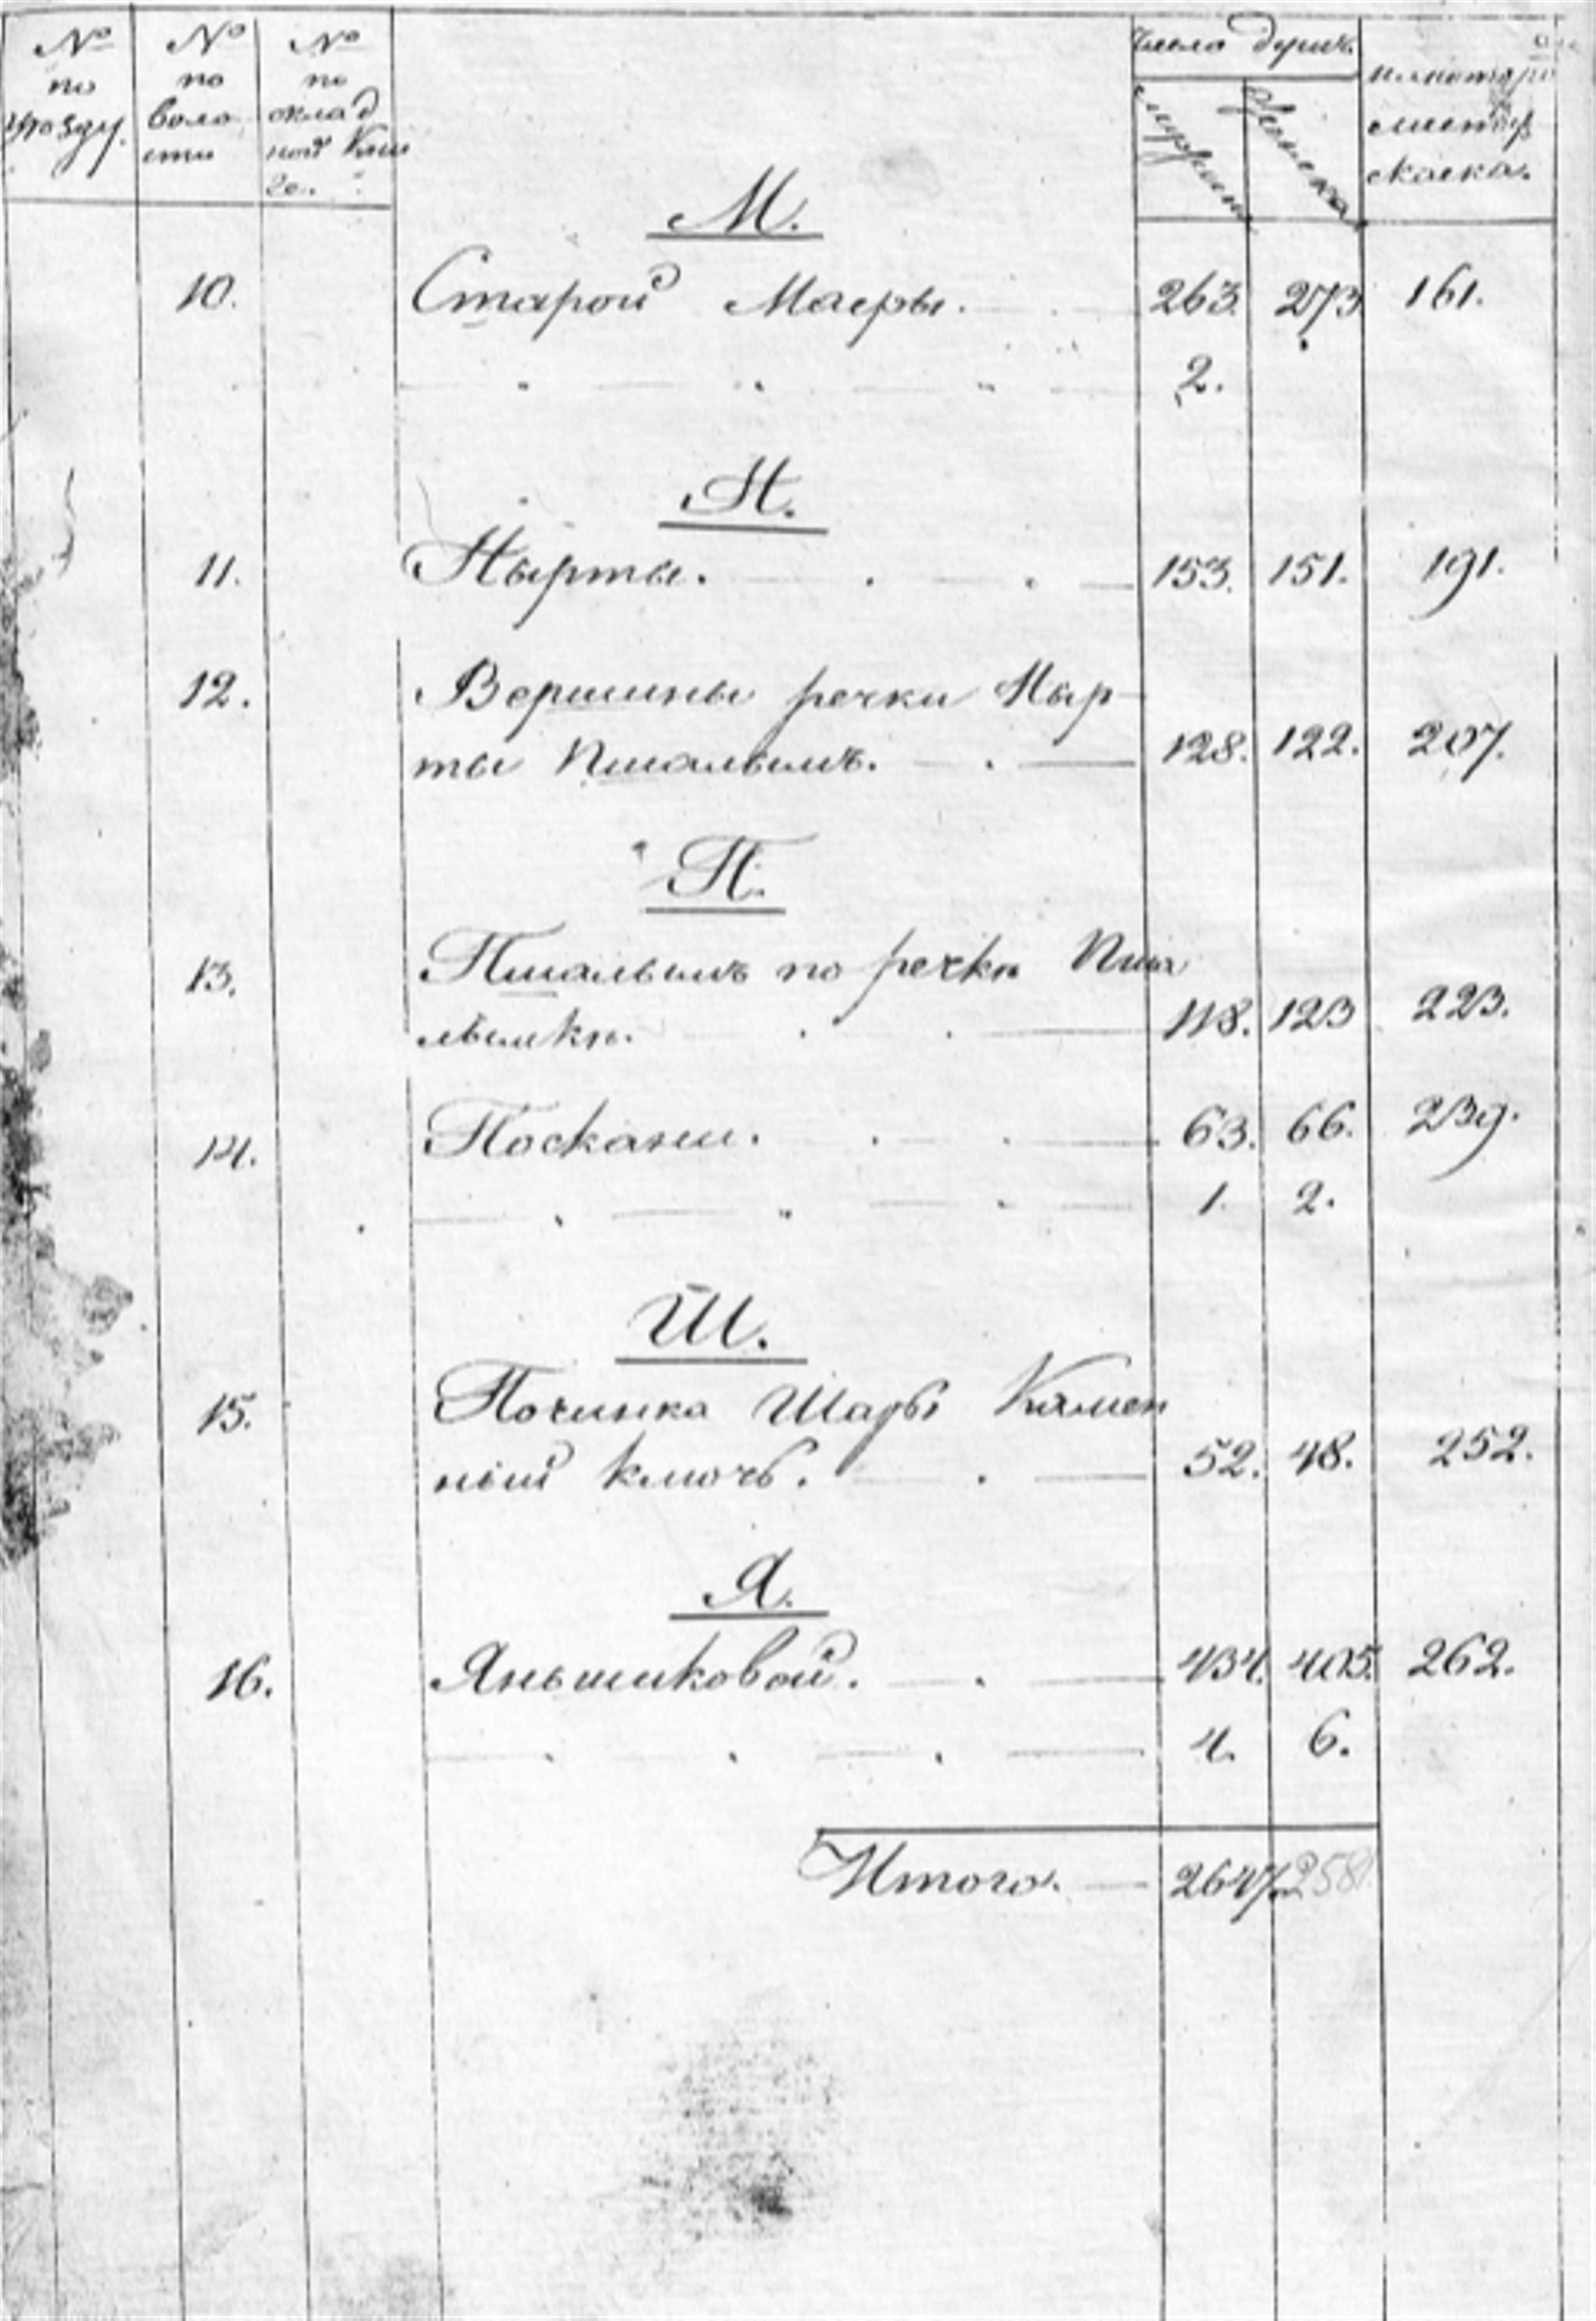 № по уѣзду.
№ по воло сти
№ по оклад ной Кни ге.
Число душъ.
мужеск
женска
на котором листѣ
сказка.
М.
10. Старой Масры. 263. 273 161.
" " " 2.
Н.
11. Нырты. 153. 151. 191.
12. Вершины речки Ныр
ты Пшалымъ. 128. 122. 207.
П.
13. Пшалымъ по речкѣ Пша
лымкѣ. 118. 123 223.
14. Поскани. 63. 66. 239.
" " " 1. 2.
Ш.
15. Починка Шады Камен
ный ключъ. 52. 48. 252.
Я.
16. Яньшиковой. 434. 405. 262.
" " " 4. 6.
Итого. 2647. 258